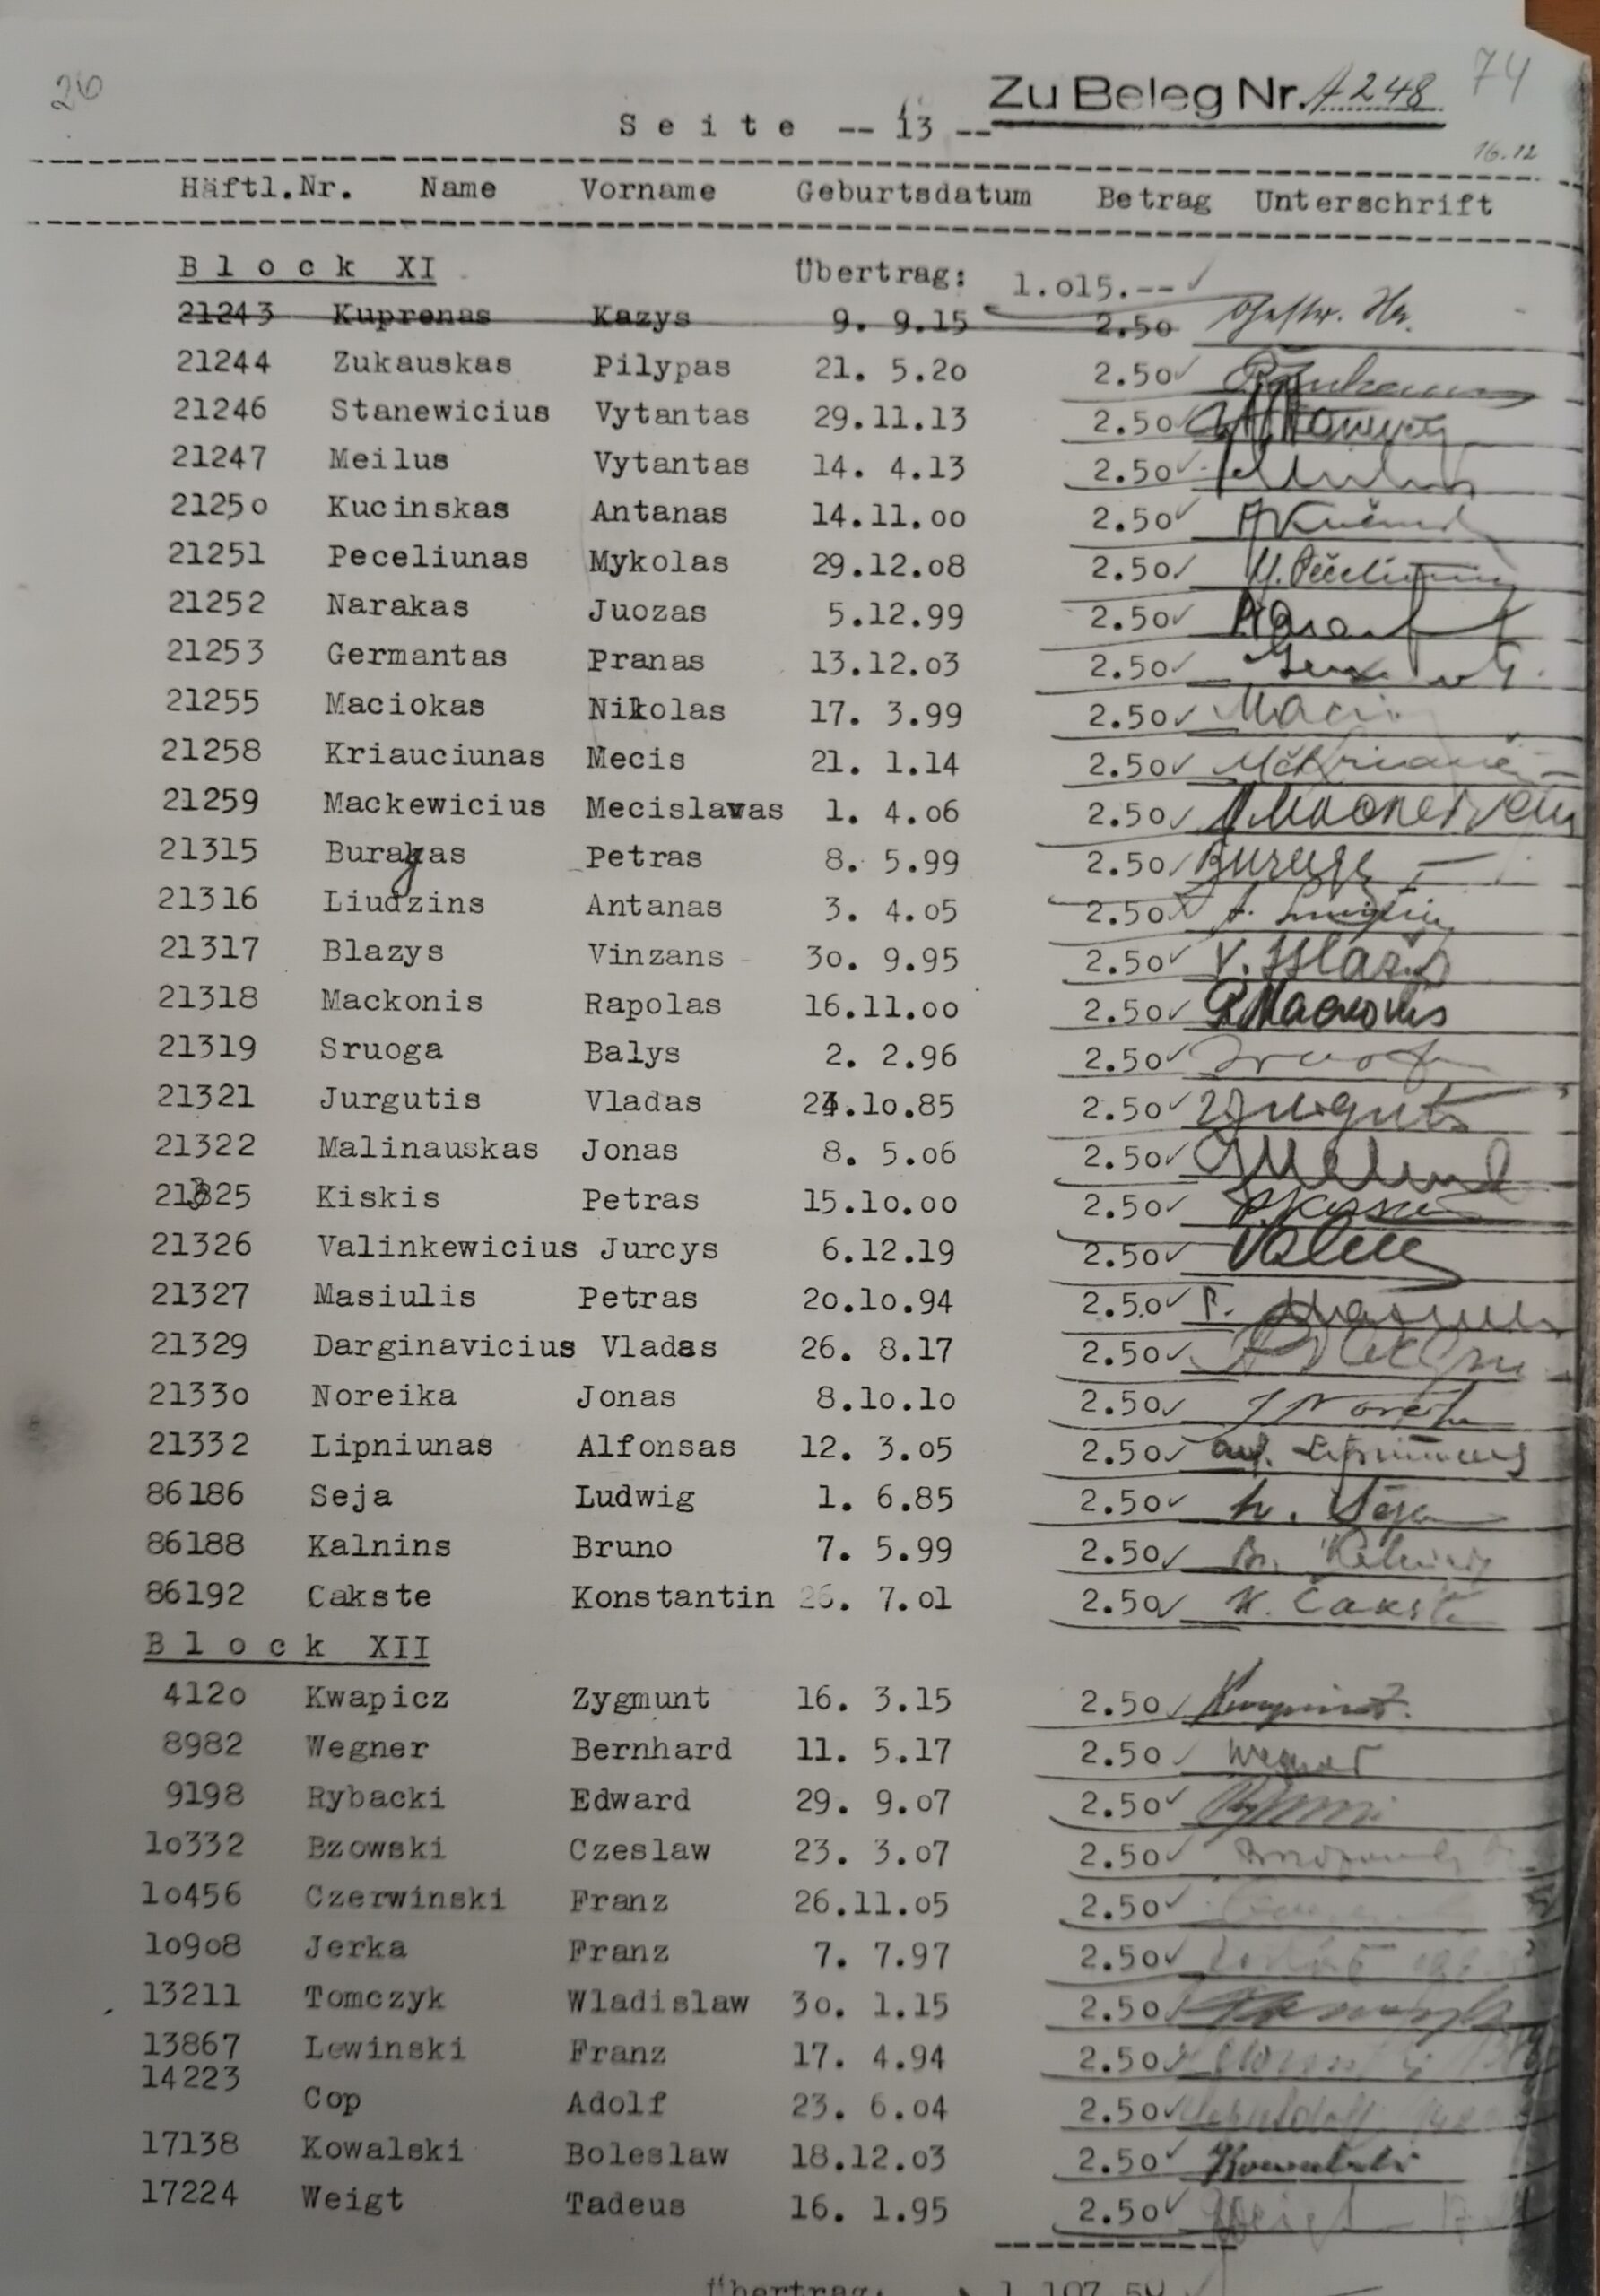 26
Zu Beleg Nr. A 248 74
S e i t e -- 13 --
16.12
Häftl.Nr. Name Vorname Geburtsdatum Betrag Unterschrift
B l o c k XI Übertrag: 1.015.-- ✓
21243 Kuprenas Kazys 9. 9.15 2.50
21244 Zukauskas Pilypas 21. 5.20 2.50 ✓
21246 Stanewicius Vytantas 29.11.13 2.50
21247 Meilus Vytantas 14. 4.13 2.50 ✓
21250 Kucinskas Antanas 14.11.00 2.50 ✓
21251 Peceliunas Mykolas 29.12.08 2.50 ✓
21252 Narakas Juozas 5.12.99 2.50 ✓
21253 Germantas Pranas 13.12.03 2.50 ✓
21255 Maciokas Nikolas 17. 3.99 2.50 ✓
21258 Kriauciunas Mecis 21. 1.14 2.50 ✓
21259 Mackewicius Mecislavas 1. 4.06 2.50 ✓
21315 Buragas Petras 8. 5.99 2.50 ✓
21316 Liudzins Antanas 3. 4.05 2.50 ✓
21317 Blazys Vinzans 30. 9.95 2.50 ✓
21318 Mackonis Rapolas 16.11.00 2.50 ✓ R. Mackonis
21319 Sruoga Balys 2. 2.96 2.50 ✓
21321 Jurgutis Vladas 24.10.85 2.50 ✓
21322 Malinauskas Jonas 8. 5.06 2.50 ✓
21325 Kiskis Petras 15.10.00 2.50 ✓
21326 Valinkewicius Jurcys 6.12.19 2.50 ✓
21327 Masiulis Petras 20.10.94 2.50 ✓
21329 Darginavicius Vladas 26. 8.17 2.50 ✓
21330 Noreika Jonas 8.10.10 2.50 ✓ J Noreika
21332 Lipniunas Alfonsas 12. 3.05 2.50 ✓
86186 Seja Ludwig 1. 6.85 2.50 ✓
86188 Kalnins Bruno 7. 5.99 2.50 ✓
86192 Cakste Konstantin 26. 7.01 2.50 ✓ K. Čakste
B l o c k XII
4120 Kwapicz Zygmunt 16. 3.15 2.50 ✓
8982 Wegner Bernhard 11. 5.17 2.50 ✓ Wegner
9198 Rybacki Edward 29. 9.07 2.50 ✓
10332 Bzowski Czeslaw 23. 3.07 2.50 ✓
10456 Czerwinski Franz 26.11.05 2.50 ✓
10908 Jerka Franz 7. 7.97 2.50 ✓
13211 Tomczyk Wladislaw 30. 1.15 2.50 ✓
13867 Lewinski Franz 17. 4.94 2.50 ✓
14223 Cop Adolf 23. 6.04 2.50 ✓
17138 Kowalski Boleslaw 18.12.03 2.50 ✓ Kowalski
17224 Weigt Tadeus 16. 1.95 2.50 ✓ Weigt
Übertrag: 1.107.50